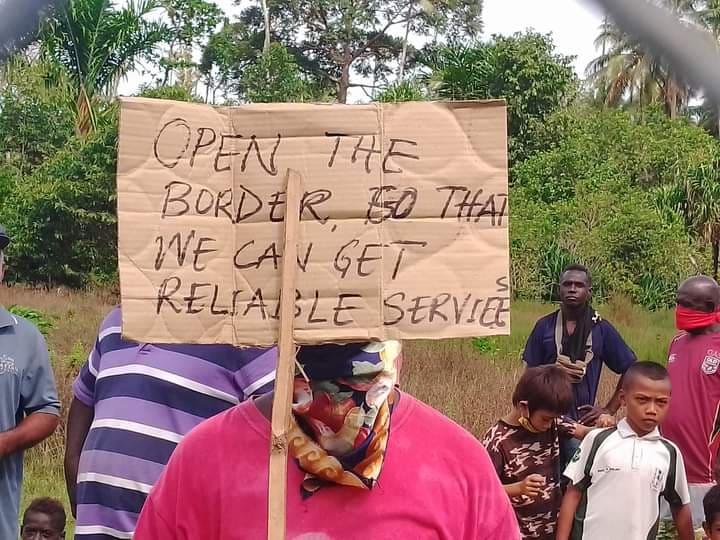 OPEN THE
BORDER, SO THAT
WE CAN GET
RELIABLE SERVICES